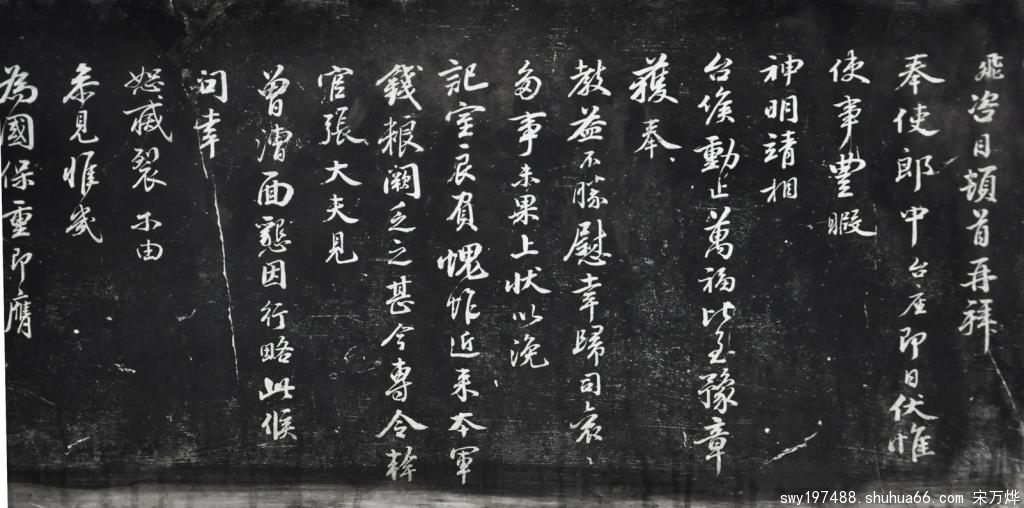 飛咨目頓首再拜
奉使郎中台座即日伏惟
使事豐暇
神明靖相
台候動止萬福比至豫章
獲奉
教益不勝慰幸歸司哀々
多事未果上狀以浼
記室良負愧怍近來本軍
錢粮闕乏之甚今專令幹
官張大夫見
曾漕面懇因行略此候
問幸
恕滅裂不由
叅見惟幾
為國保重即膺
swy197488.shuhua66.com 宋万烨